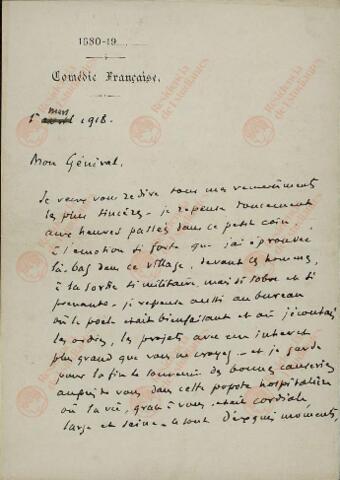 1680-19
Comédie Française.
1er mars avril 1918.
Mon Général,
Je veux vous redire tous mes remerciements
les plus sincères - je repense doucement
aux heures passées dans ce petit coin
à l'émotion si forte que j'ai éprouvée
là-bas dans ce village, devant ces hommes,
à la soirée si militaire, mais si sobre et si
prenante. je repense aussi au bureau
où le poêle était bienfaisant et où j'écoutais
les ordres, les projets avec un intérêt
plus grand que vous ne croyez - et je garde
pour la fin le souvenir des bonnes causeries
auprès de vous dans cette popote hospitalière
où la vie, grâce à vous, était cordiale,
large et saine - ce sont d'exquis moments,
Residencia
de Estudiantes